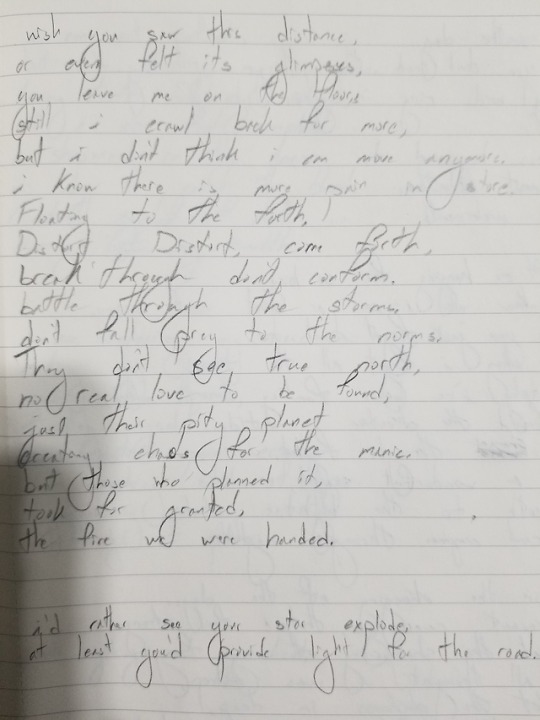 wish you saw this distance,
or even felt its glimpses,
you leave me on the floor,
still i crawl back for more,
but i don't think i can move anymore.
i know there is more pain in store.
Floating to the forth,
Distort Distort, come forth,
break through don't conform.
battle through the storms,
don't fall prey to the norms.
They don't see true north,
no real love to be found,
just their pity planet
creating chaos for the manic.
but those who planned it,
took for granted,
the fire we were handed.
i'd rather see your star explode,
at least you'd provide light for the road.